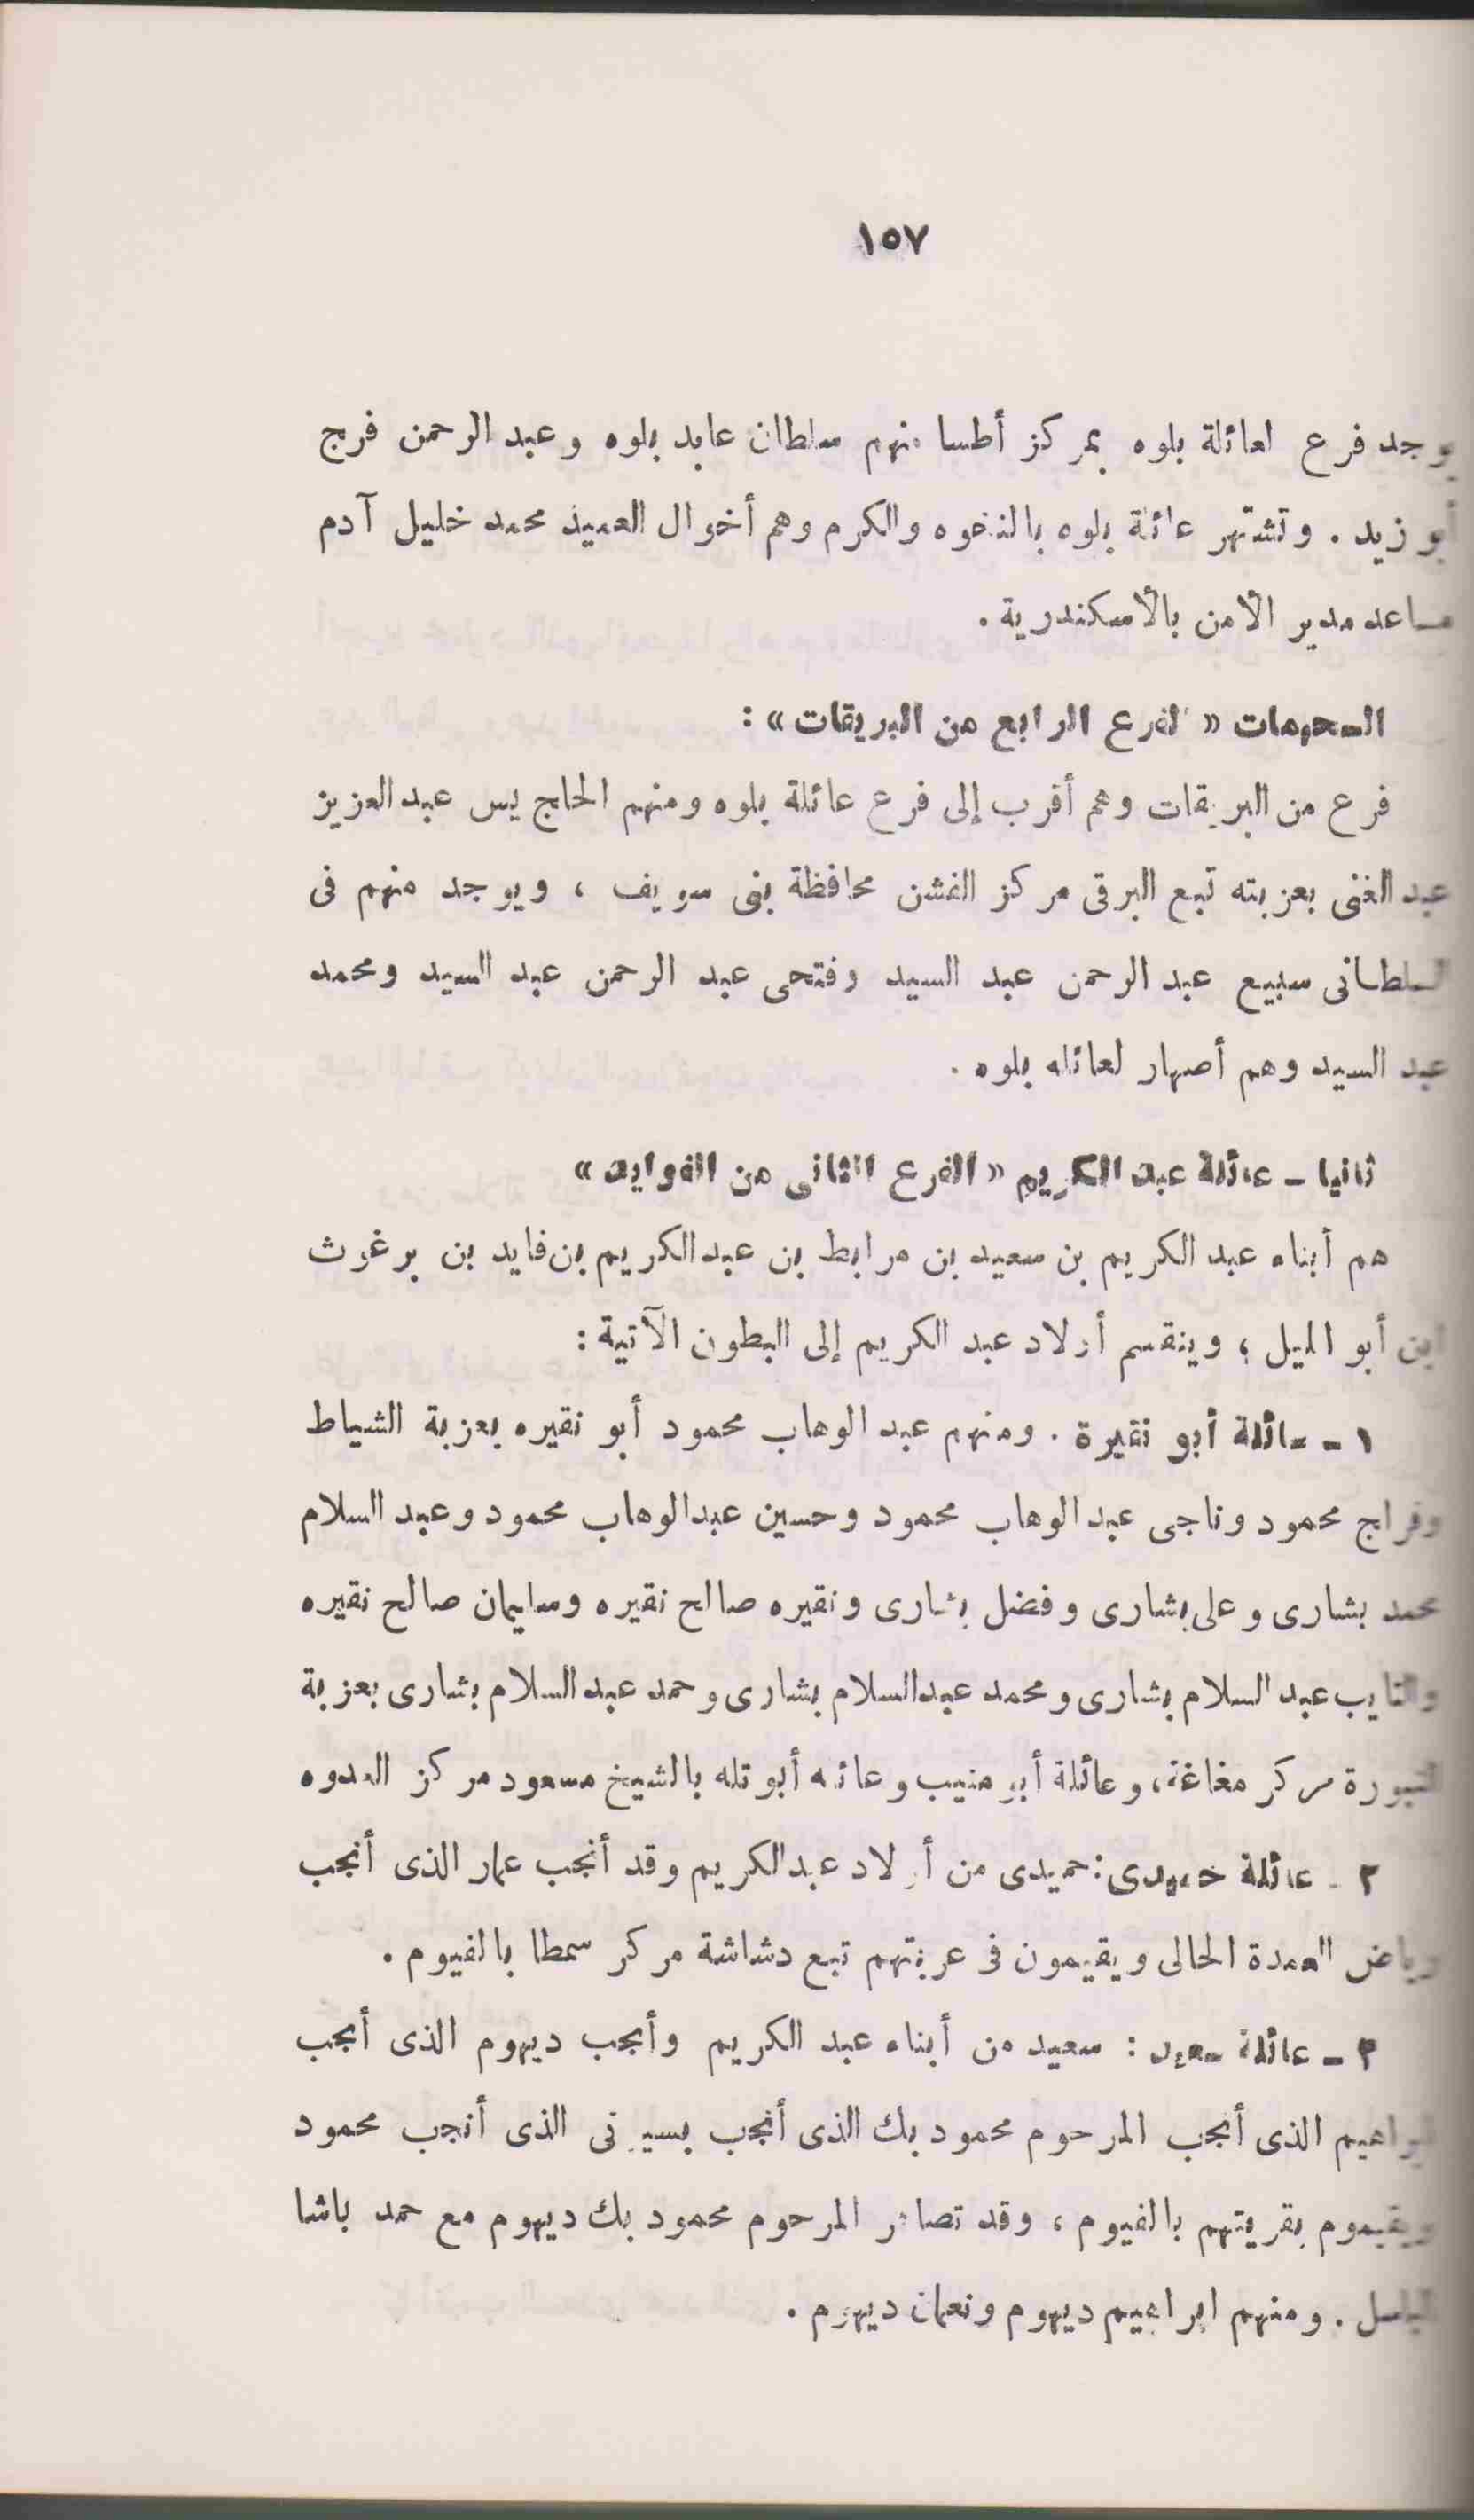 ١٥٧
يوجد فرع لعائلة بلوه بمركز أطسا منهم سلطان عابد بلوه وعبد الرحمن فرج
أبو زيد . وتشتهر عائلة بلوه بالنخوه والكرم وهم أخوال العميد محمد خليل آدم
مساعد مدير الأمن بالأسكندرية .
« الفرع الرابع من البريقات » :
فرع من البريقات وهم أقرب إلى فرع عائلة بلوه ومنهم الحاج يس عبد العزيز
عبد الغنى بعزبته تبع البرقى مركز الفشن محافظة بنى سويف ، ويوجد منهم فى
السلطانى سبيع عبد الرحمن عبد السيد وفتحى عبد الرحمن عبد السيد ومحمد
عبد السيد وهم أصهار لعائله بلوه .
ثانيا – عائلة عبد الكريم « الفرع الثانى من الفوايد »
هم أبناء عبد الكريم بن سعيد بن مرابط بن عبد الكريم بن فايد بن برغوث
ابن أبو الليل ؛ وينقسم أولاد عبد الكريم إلى البطون الآتية :
١ – عائلة أبو نقيرة . ومنهم عبد الوهاب محمود أبو نقيره بعزبة الشياط
وفراج محمود وناجى عبد الوهاب محمود وحسين عبد الوهاب محمود وعبد السلام
محمد بشارى وعلى بشارى وفضل بشارى ونقيره صالح نقيره وسليمان صالح نقيره
والتايب عبد السلام بشارى ومحمد عبد السلام بشارى وحمد عبد السلام بشارى بعزبة
مركز مغاغة ، وعائلة أبو منيب وعائله أبو تله بالشيخ مسعود مركز العدوه
٢ – عائلة حميدى : حميدى من أولاد عبد الكريم وقد أنجب عمار الذى أنجب
رياض العمدة الحالى ويقيمون فى عزبتهم تبع دشاشة مركز سمطا بالفيوم .
٣ – عائلة سعيد : سعيد من أبناء عبد الكريم وأنجب ديهوم الذى أنجب
ابراهيم الذى أنجب المرحوم محمود بك الذى أنجب بسيونى الذى أنجب محمود
ويقيموم بقريتهم بالفيوم ، وقد تصاهر المرحوم محمود بك ديهوم مع حمد باشا
الباسل . ومنهم ابراهيم ديهوم ونعمان ديهوم .